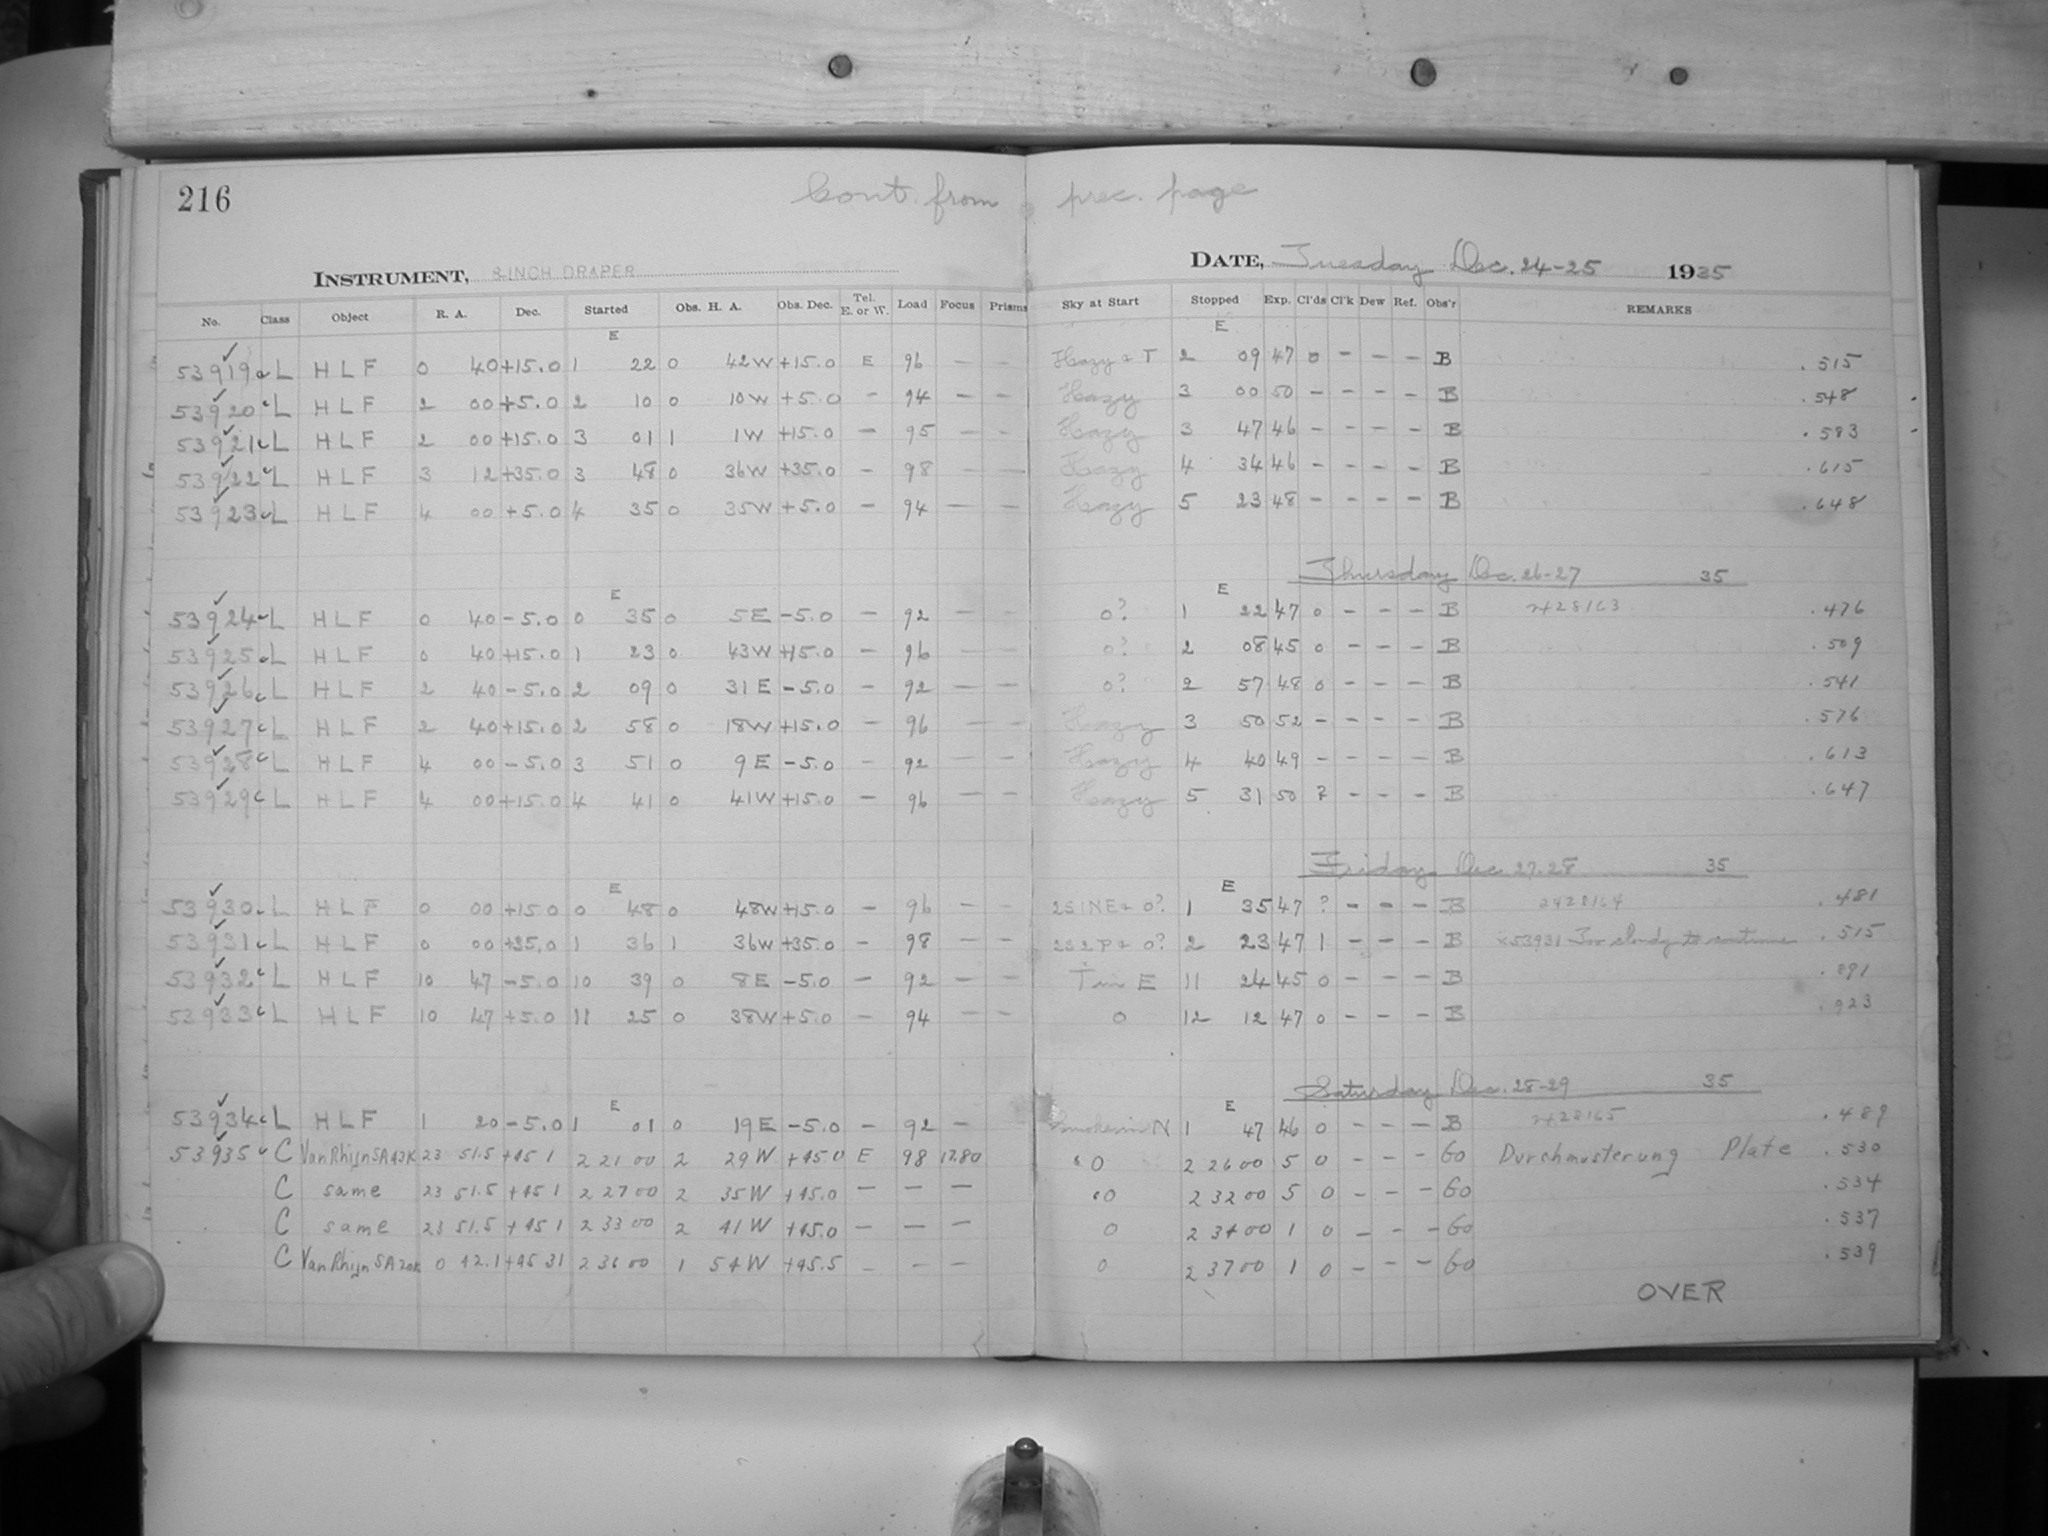 216 Cont. from prec. page
INSTRUMENT, 8 INCH DRAPER DATE, Tuesday Dec. 24-25 1935
No. Class Object R. A. Dec. Started Obs. H. A. Obs. Dec. Tel. E. or W. Load Focus Prisms Sky at Start Stopped Exp. Cl'ds Cl'k Dew Ref. Obs'r REMARKS
E E
53919 c L H L F 0 40 +15.0 1 22 0 42 W +15.0 E 96 — — Hazy & T 2 09 47 0 — — — B .515
53920 c L H L F 2 00 +5.0 2 10 0 10 W +5.0 — 94 — — Hazy 3 00 50 — — — — B .548
53921 c L H L F 2 00 +15.0 3 01 1 1 W +15.0 — 95 — — Hazy 3 47 46 — — — — B .583
53922 c L H L F 3 12 +35.0 3 48 0 36 W +35.0 — 98 — — Hazy 4 34 46 — — — — B .615
53923 c L H L F 4 00 +5.0 4 35 0 35 W +5.0 — 94 — — Hazy 5 23 48 — — — — B .648
Thursday Dec. 26-27 35
E E
53924 c L H L F 0 40 -5.0 0 35 0 5 E -5.0 — 92 — — 0? 1 22 47 0 — — — B 2428163 .476
53925 c L H L F 0 40 +15.0 1 23 0 43 W +15.0 — 96 — — 0? 2 08 45 0 — — — B .509
53926 c L H L F 2 40 -5.0 2 09 0 31 E -5.0 — 92 — — 0? 2 57 48 0 — — — B .541
53927 c L H L F 2 40 +15.0 2 58 0 18 W +15.0 — 96 — — Hazy 3 50 52 — — — — B .576
53928 c L H L F 4 00 -5.0 3 51 0 9 E -5.0 — 92 — — Hazy 4 40 49 — — — — B .613
53929 c L H L F 4 00 +15.0 4 41 0 41 W +15.0 — 96 — — Hazy 5 31 50 ? — — — B .647
Friday Dec. 27-28 35
E E
53930 c L H L F 0 00 +15.0 0 48 0 48 W +15.0 — 96 — — 2S1NE & 0? 1 35 47 ? — — — B 2428164 .481
53931 c L H L F 0 00 +35.0 1 36 1 36 W +35.0 — 98 — — 2S2P & 0? 2 23 47 1 — — — B x53931 Too cloudy to continue .515
53932 c L H L F 10 47 -5.0 10 39 0 8 E -5.0 — 92 — — T in E 11 24 45 0 — — — B .891
53933 c L H L F 10 47 +5.0 11 25 0 38 W +5.0 — 94 — — 0 12 12 47 0 — — — B .923
Saturday Dec. 28-29 35
E E
53934 c L H L F 1 20 -5.0 1 01 0 19 E -5.0 — 92 — Smoke in N 1 47 46 0 — — — B 2428165 .489
53935 C Van Rhijn SA 43K 23 51.5 +45 1 2 21 00 2 29 W +45.0 E 98 1280 0 2 26 00 5 0 — — — Go Durchmusterung Plate .530
C same 23 51.5 +45 1 2 27 00 2 35 W +45.0 — — — 0 2 32 00 5 0 — — — Go .534
C same 23 51.5 +45 1 2 33 00 2 41 W +45.0 — — — 0 2 34 00 1 0 — — — Go .537
C Van Rhijn SA 20K 0 42.1 +45 31 2 36 00 1 54 W +45.5 — — — 0 2 37 00 1 0 — — — Go .539
OVER